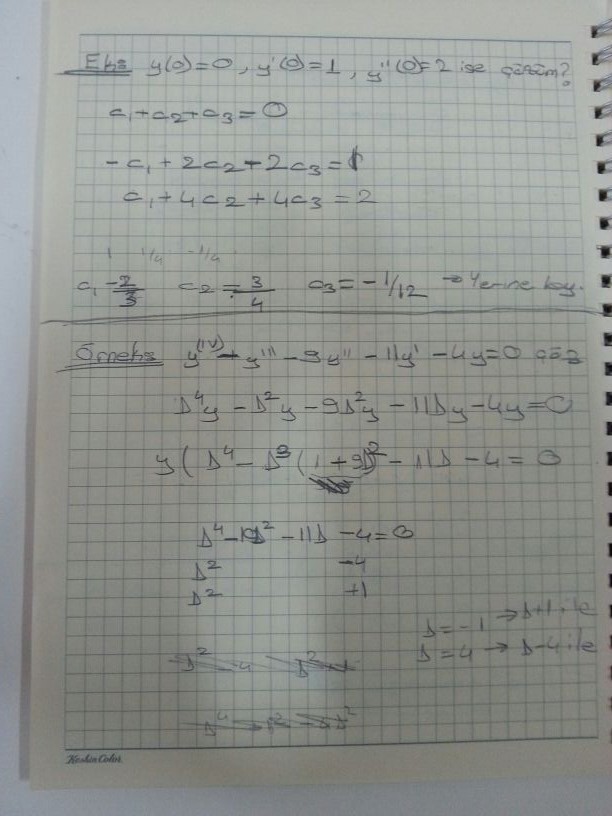 Ek: y(0)=0, y'(0)=1, y''(0)=2 ise çözüm?
c₁+c₂+c₃=0
-c₁+2c₂-2c₃=1
c₁+4c₂+4c₃=2
1 1/4 -1/4
c₁ -2/3 c₂=3/4 c₃=-1/12 → Yerine koy.
Örnek: y⁽ᴵⱽ⁾+y'''-9y''-11y'-4y=0 çöz
D⁴y-D²y-9D²y-11Dy-4y=0
y(D⁴-D³(1+9D)²-11D-4=0
D⁴-10D²-11D-4=0
D² -4
D² +1
D=-1 → D+1 ile
D=4 → D-4 ile
D² 4 D² 1
KeskinColor